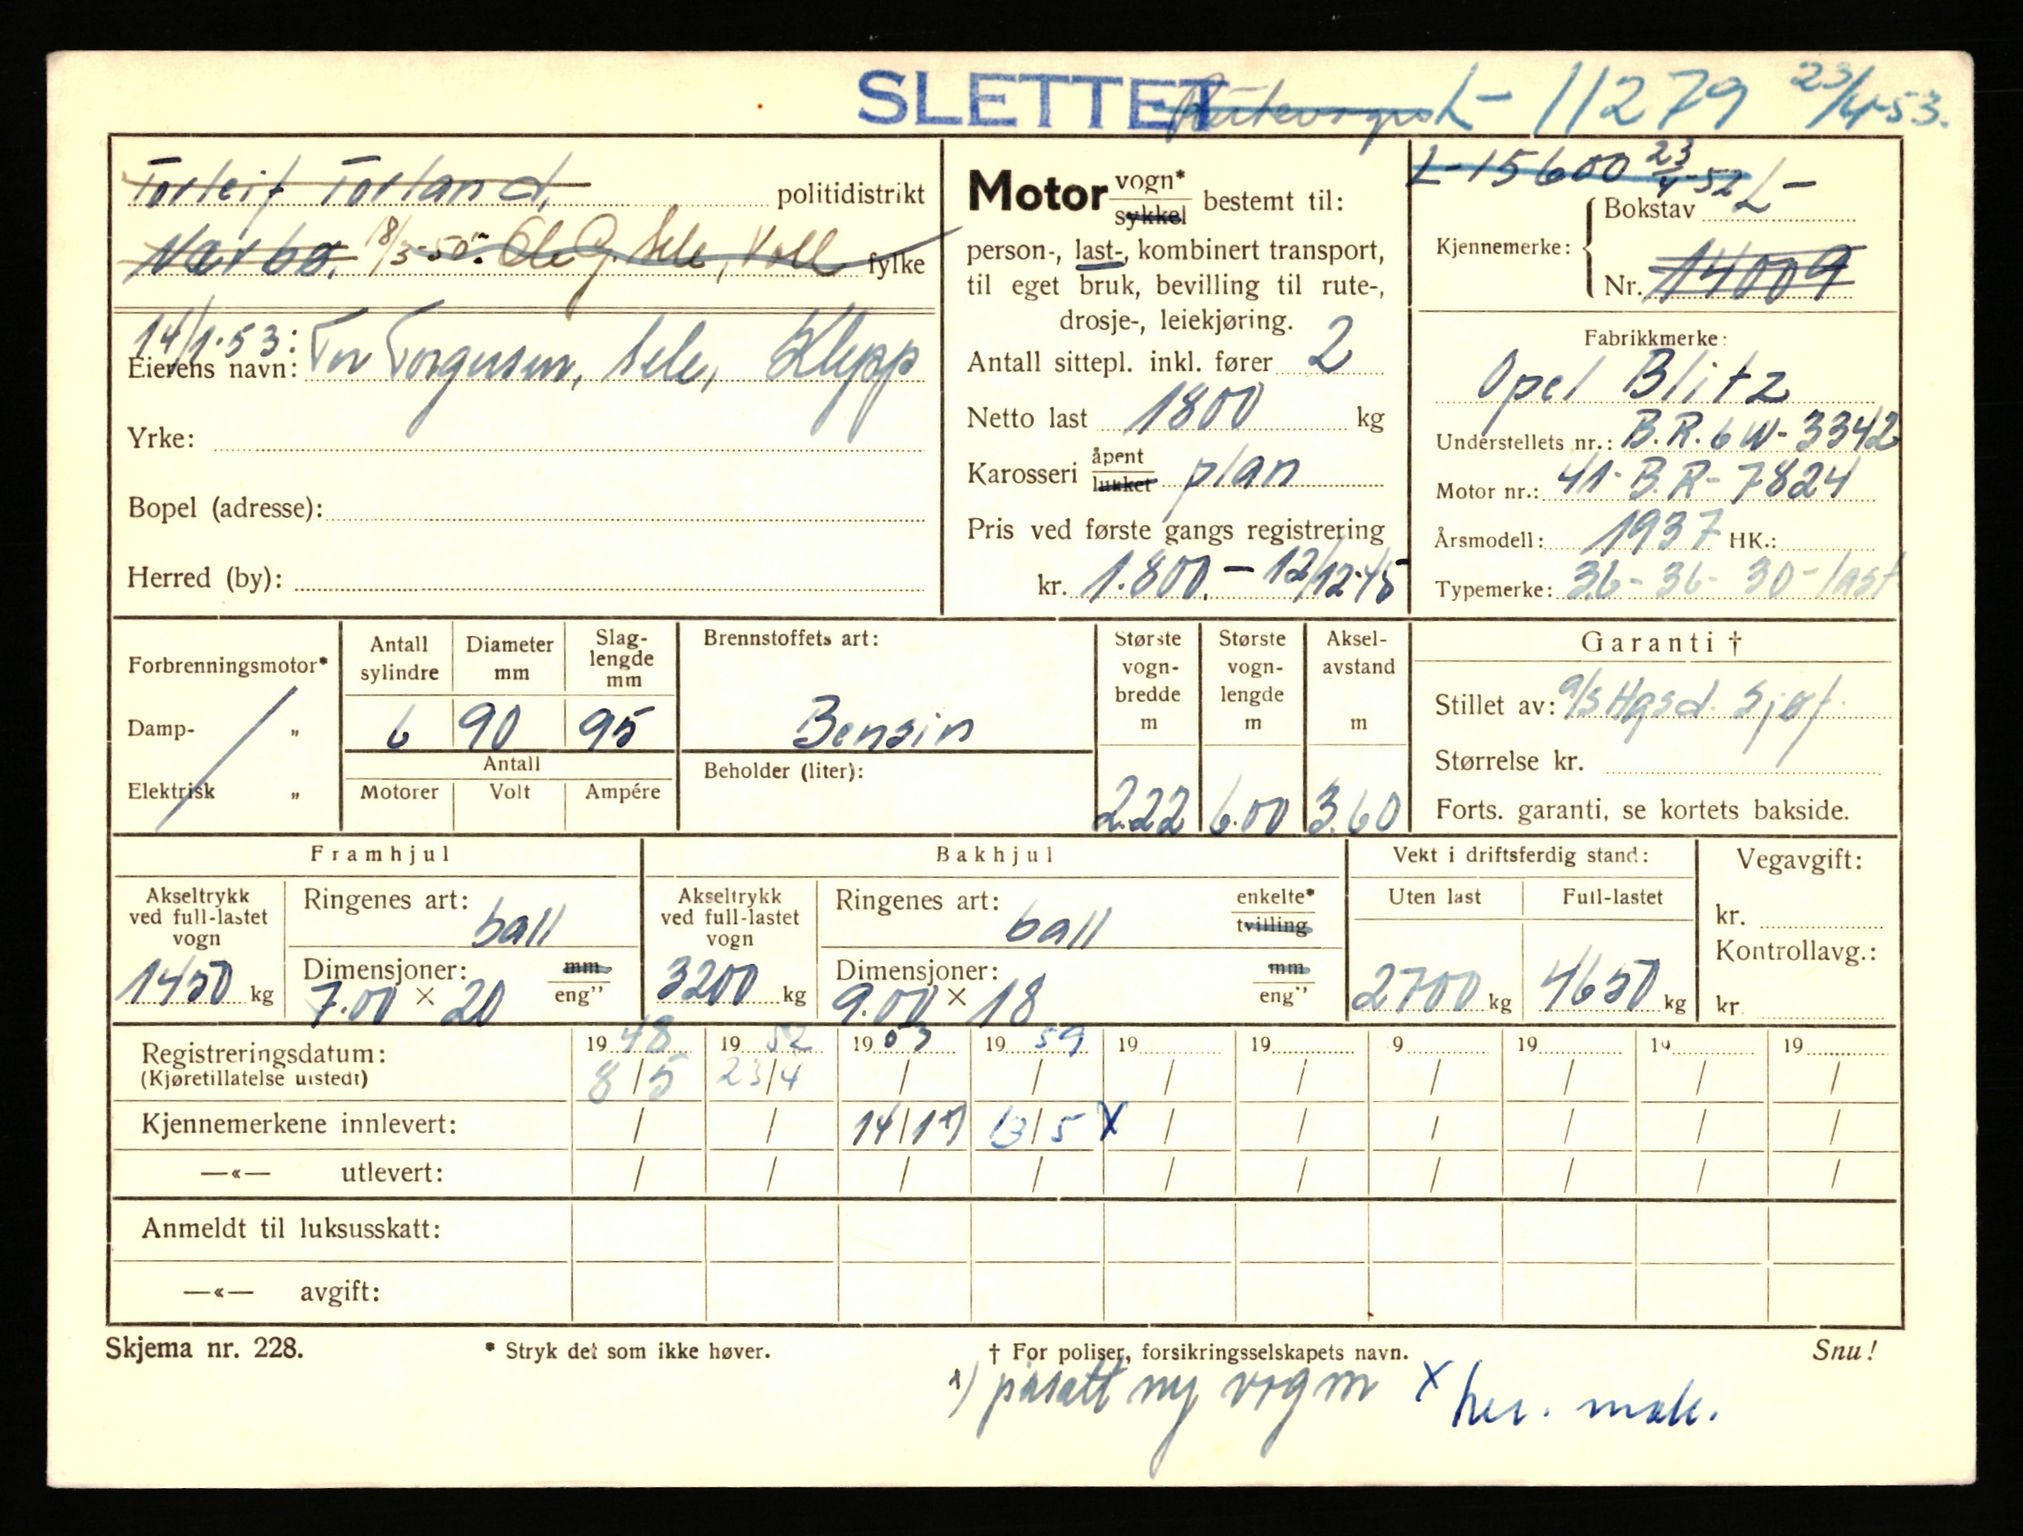 SLETTET L- 11279 23/4-53.
Torleif Torland, politidistrikt
Nærbø. 18/3-50: Ole G. Sele, Voll fylke
14/1-53:
Eierens navn: Tor Torgersen, Sele, Klepp
Yrke:
Bopel (adresse):
Herred (by):
Motor vogn* sykkel bestemt til:
person-, last-, kombinert transport,
til eget bruk, bevilling til rute-,
drosje-, leiekjøring.
Antall sittepl. inkl. fører 2
Netto last 1800 kg
Karosseri åpent lukket plan
Pris ved første gangs registrering
kr. 1.800.- 12/12-45
L-15600 23/4-52
Kjennemerke: Bokstav L-
Nr. 14009
Fabrikkmerke:
Opel Blitz
Understellets nr.: B.R. 6 W- 3342
Motor nr.: 41- B.R- 7824
Årsmodell: 1937 HK.:
Typemerke: 36- 36- 30- last
Forbrenningsmotor*
Damp- „
Elektrisk „
Antall sylindre
6
Diameter mm
90
Slag-lengde mm
95
Antall
Motorer Volt Ampére
Brennstoffets art:
Bensin
Beholder (liter):
Største vogn-bredde m
2.22
Største vogn-lengde m
6.00
Aksel-avstand m
3.60
Garanti †
Stillet av: a/s Hgsd. Sjøf.
Størrelse kr.
Forts. garanti, se kortets bakside.
Framhjul
Akseltrykk ved full-lastet vogn
1450 kg
Ringenes art: ball
Dimensjoner: mm eng"
7.00 × 20
Bakhjul
Akseltrykk ved full-lastet vogn
3200 kg
Ringenes art: ball enkelte* tvilling
Dimensjoner: mm eng"
9.00 × 18
Vekt i driftsferdig stand:
Uten last Full-lastet
2700 kg 4650 kg
Vegavgift:
kr.
Kontrollavg.:
kr.
Registreringsdatum: 19 48 19 52 19 53 19 59 19 19 9 19 19 19
(Kjøretillatelse utstedt) 8/5 23/4 / / / / / / / /
Kjennemerkene innlevert: / / 14/1 *) 13/5 X / / / / / /
—«— utlevert: / / / / / / / / / /
Anmeldt til luksusskatt:
—«— avgift:
Skjema nr. 228. * Stryk det som ikke høver. † For poliser, forsikringsselskapets navn. Snu!
*) påsatt ny vogn X her. mask.